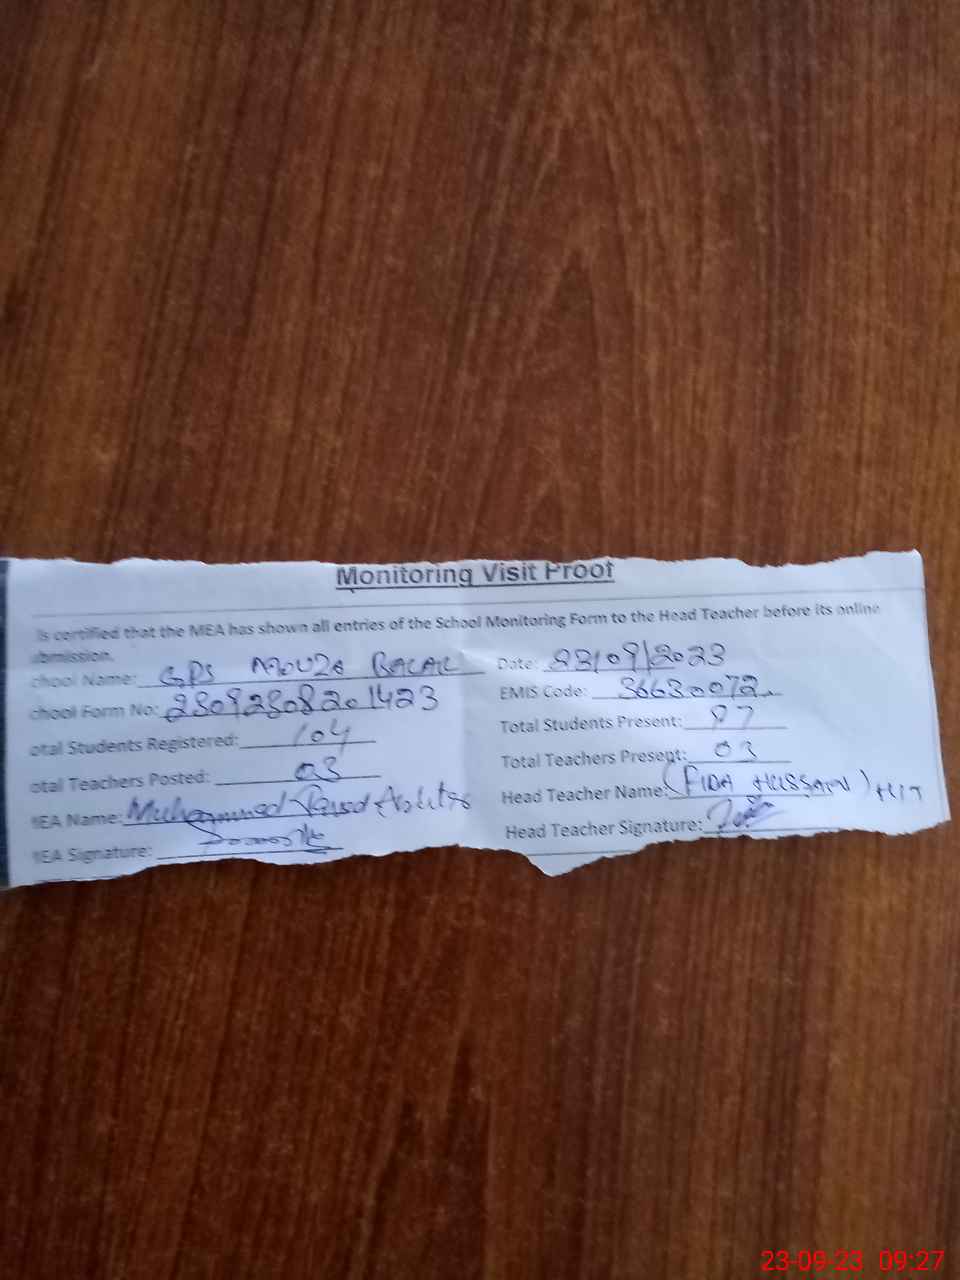 Monitoring Visit Proof
is certified that the MEA has shown all entries of the School Monitoring Form to the Head Teacher before its online
bmission.
chool Name: GPS MOUZA Date: 23/09/2023
chool Form No: 23092308201423 EMIS Code: 36630072
otal Students Registered: 104 Total Students Present: 97
otal Teachers Posted: 03 Total Teachers Present: 03
MEA Name: Muhammad Head Teacher Name: (FIDA HUSSAIN) H/T
MEA Signature: Head Teacher Signature:
23-09-23 09:27